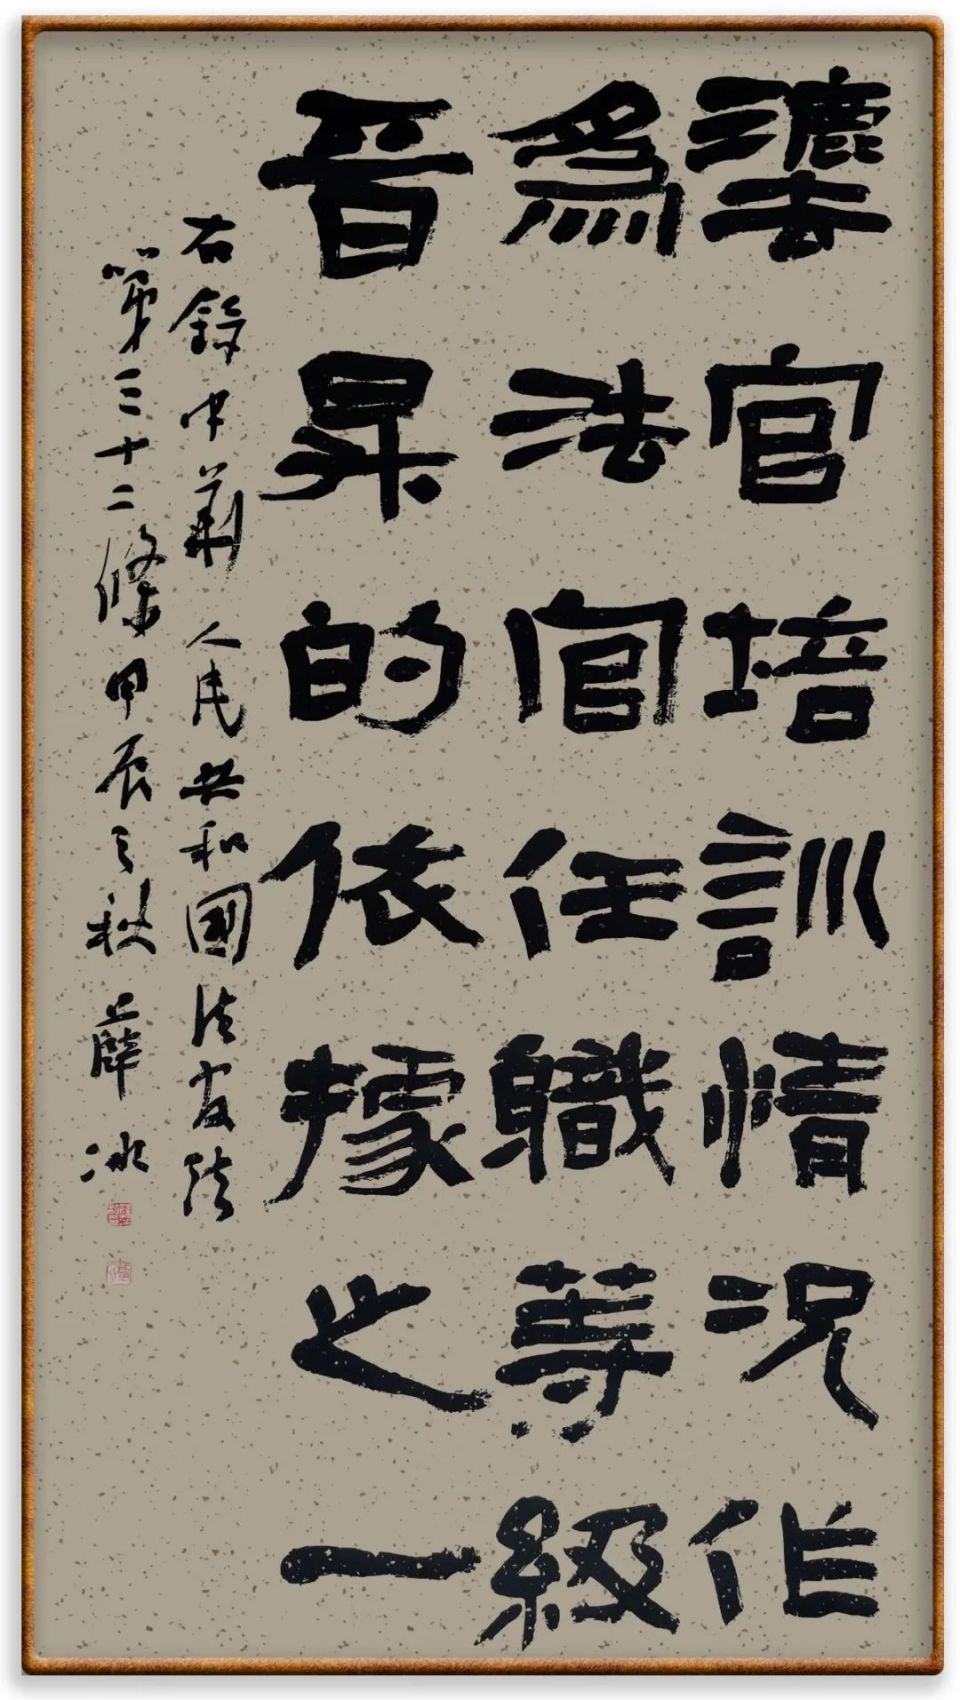 灋官培訓情況作
為法官任職等級
晉昇的依據之一
右錄中華人民共和國法官法
第三十二條甲辰之秋薛冰